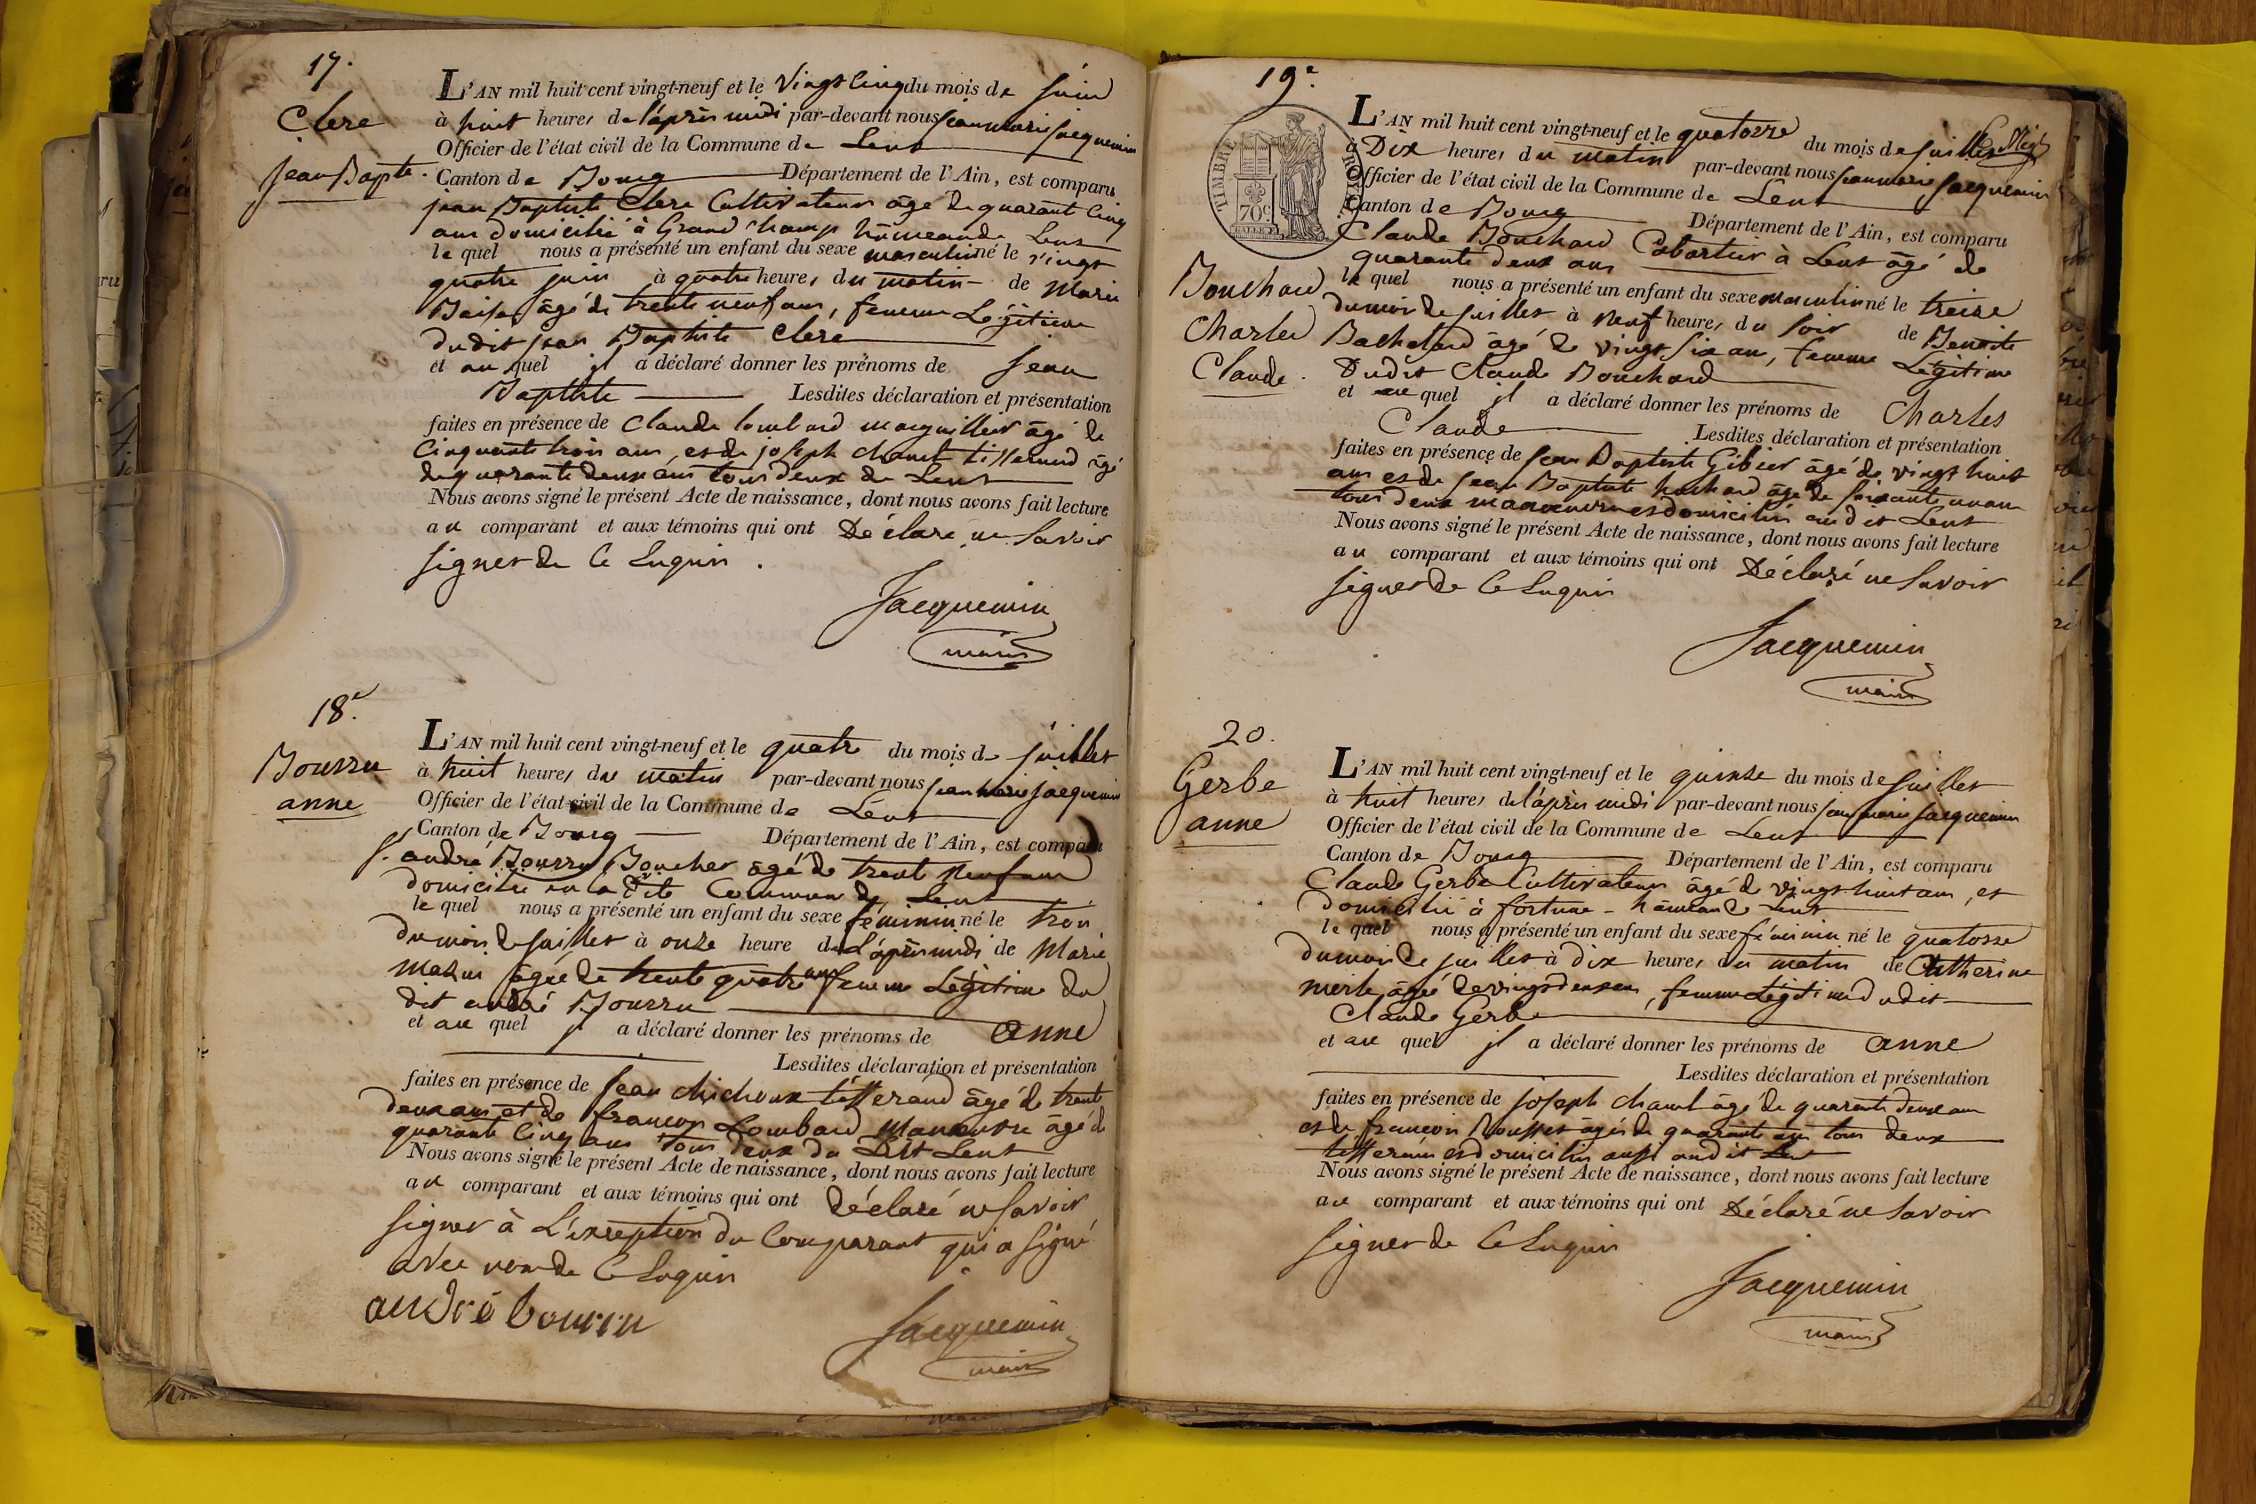 17.
Clerc
Jean Bapte.
L'AN mil huit cent vingt-neuf et le vingt Cinq du mois de juin
à huit heures de l'après midi par-devant nous jean marie jacquemin
Officier de l'état civil de la Commune de Lent
Canton de Bourg Département de l'Ain, est comparu
jean Baptiste Clerc Cultivateur âgé de quarant Cinq
ans domicilié à Grand Champ hameau de Lent
le quel nous a présenté un enfant du sexe masculin né le vingt
quatre juin à quatre heures du matin de Marie
âgé de trente neuf ans, femme Légitime
dudit jean Baptiste Clerc
et au quel il a déclaré donner les prénoms de jean
Baptiste Lesdites déclaration et présentation
faites en présence de Claude Lombard marguillier âgé de
Cinquante trois ans, et de joseph chanel tisserand âgé
de quarante deux ans tous deux de Lent
Nous avons signé le présent Acte de naissance, dont nous avons fait lecture
au comparant et aux témoins qui ont Déclaré ne Savoir
signer de Ce Enquis.
Jacquemin
maire
18e.
Bourru
anne
L'AN mil huit cent vingt-neuf et le quatre du mois de juillet
à huit heures du matin par-devant nous jean marie jacquemin
Officier de l'état civil de la Commune de Lent
Canton de Bourg Département de l'Ain, est comparu
S. andré Bourru Boucher âgé de trente neuf ans
domicilié en la Dite Commune de Lent
le quel nous a présenté un enfant du sexe féminin né le trois
du mois de juillet à onze heure de l'après midi de Marie
âgée de trente quatre ans femme Légitime du
dit andré Bourru
et au quel il a déclaré donner les prénoms de anne
Lesdites déclaration et présentation
faites en présence de jean chichoux tisserand âgé de trente
deux ans et de françois Lombard manoeuvre âgé de
quarante Cinq ans tous deux du Dit Lent
Nous avons signé le présent Acte de naissance, dont nous avons fait lecture
au comparant et aux témoins qui ont Déclaré ne Savoir
signer à L'exception du Comparant qui a signé
avec nous de Ce Enquis
andré bourru
Jacquemin
maire
19e.
TIMBRE ROYAL
70c.
Bouchard
Charles
Claude.
L'AN mil huit cent vingt-neuf et le quatorze du mois de juillet
à Dix heures du matin par-devant nous jean marie jacquemin
Officier de l'état civil de la Commune de Lent
Canton de Bourg Département de l'Ain, est comparu
Claude Bouchard Cabartier à Lent âgé de
quarante deux ans
le quel nous a présenté un enfant du sexe masculin né le treize
du mois de juillet à neuf heures du soir de Benoite
Bachelard âgé de vingt six ans, femme Légitime
Dudit Claude Bouchard
et au quel il a déclaré donner les prénoms de Charles
Claude Lesdites déclaration et présentation
faites en présence de jean Baptiste Gibier âgé de vingt huit
ans et de jean Baptiste âgé de soixante un ans
tous deux manoeuvres domiciliés au dit Lent
Nous avons signé le présent Acte de naissance, dont nous avons fait lecture
au comparant et aux témoins qui ont Déclaré ne Savoir
signer de Ce Enquis
Jacquemin
maire
20.
Gerbe
anne
L'AN mil huit cent vingt-neuf et le quinze du mois de juillet
à huit heures de l'après midi par-devant nous jean marie jacquemin
Officier de l'état civil de la Commune de Lent
Canton de Bourg Département de l'Ain, est comparu
Claude Gerbe Cultivateur âgé de vingt huit ans, et
domicilié à fortune hameau de Lent
le quel nous a présenté un enfant du sexe féminin né le quatorze
du mois de juillet à dix heures du matin de Catherine
merle, âgé de vingt deux ans, femme Légitime dudit
Claude Gerbe
et au quel il a déclaré donner les prénoms de anne
Lesdites déclaration et présentation
faites en présence de joseph chanel âgé de quarante deux ans
et de françois Rousset âgé de quarante ans tous deux
tisserans et domiciliés aussi au dit Lent
Nous avons signé le présent Acte de naissance, dont nous avons fait lecture
au comparant et aux témoins qui ont Déclaré ne Savoir
signer de Ce Enquis
Jacquemin
maire